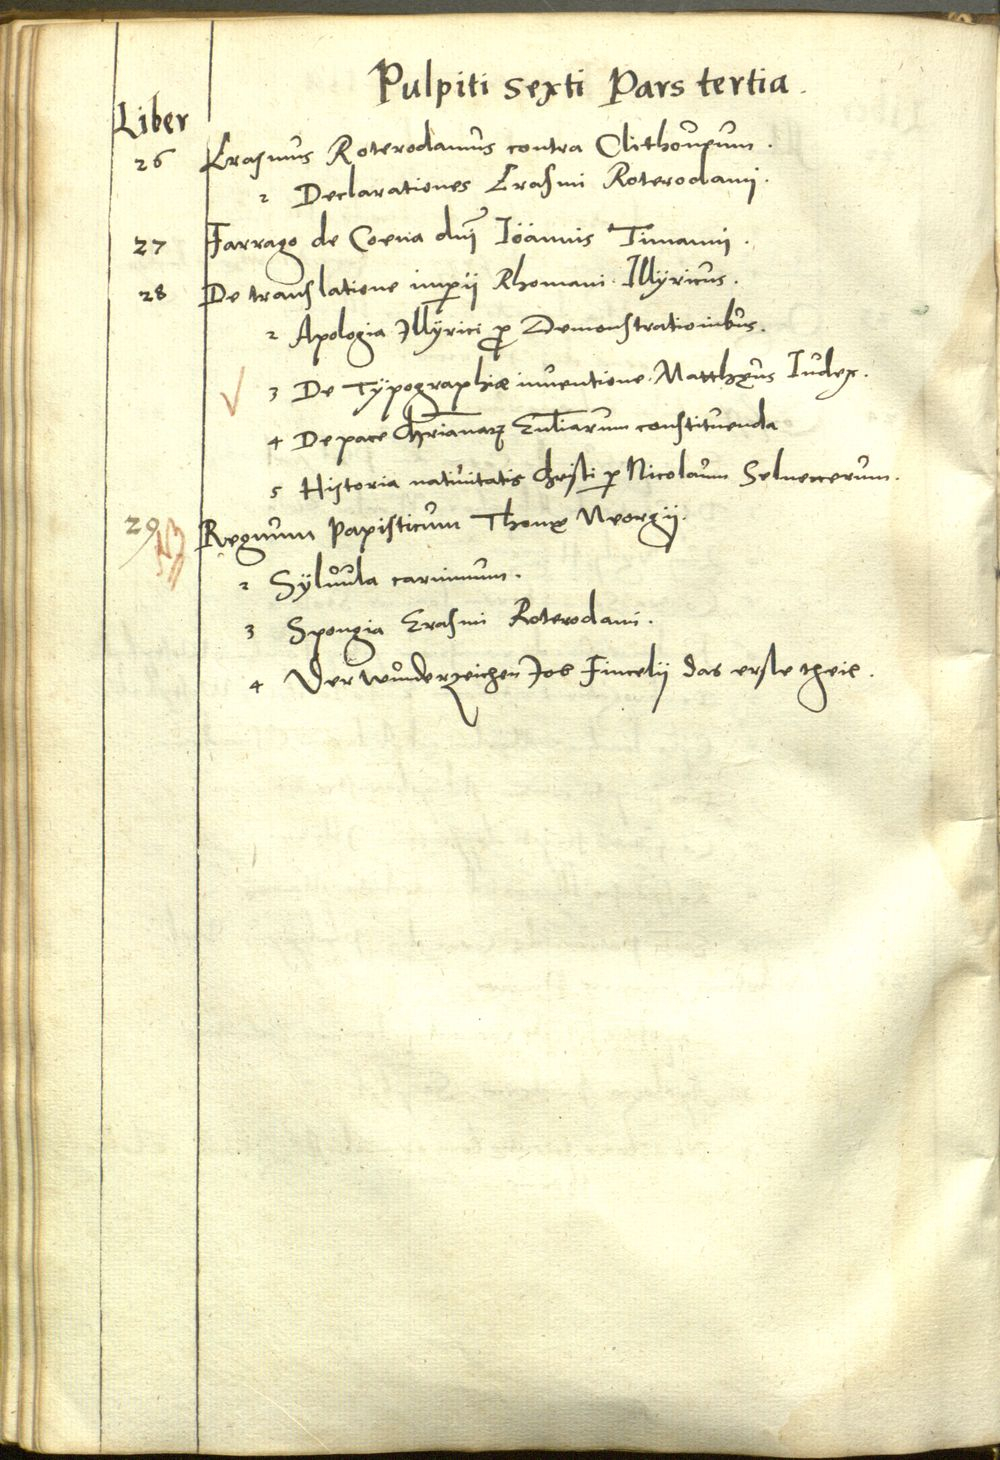 Pulpiti sexti Pars tertia.
Liber
26 Erasmus Roterodamus contra Clithoueum.
2 Declarationes Erasmi Roterodami.
27 Farrago de Coena dnī Iöannis Timanni.
28 De translatione imꝑii Rhomani. Illÿricus.
2 Apologia Illÿrici ꝓ Demonstrationibus.
3 De Tÿpographiæ inuentione. Matthęus Iudex.
4 De pace Chrīanaꝝ Eccliarum constituenda
5 Historia natiuitatis Christi ꝑ Nicolaum Selneccerum.
29 Regnum Papisticum Thomę Neorgii.
2 Sÿluula carminum.
3 Spongia Erasmi Roterodami.
4 Der wunderzeichen Job Fincelii das erste theil.